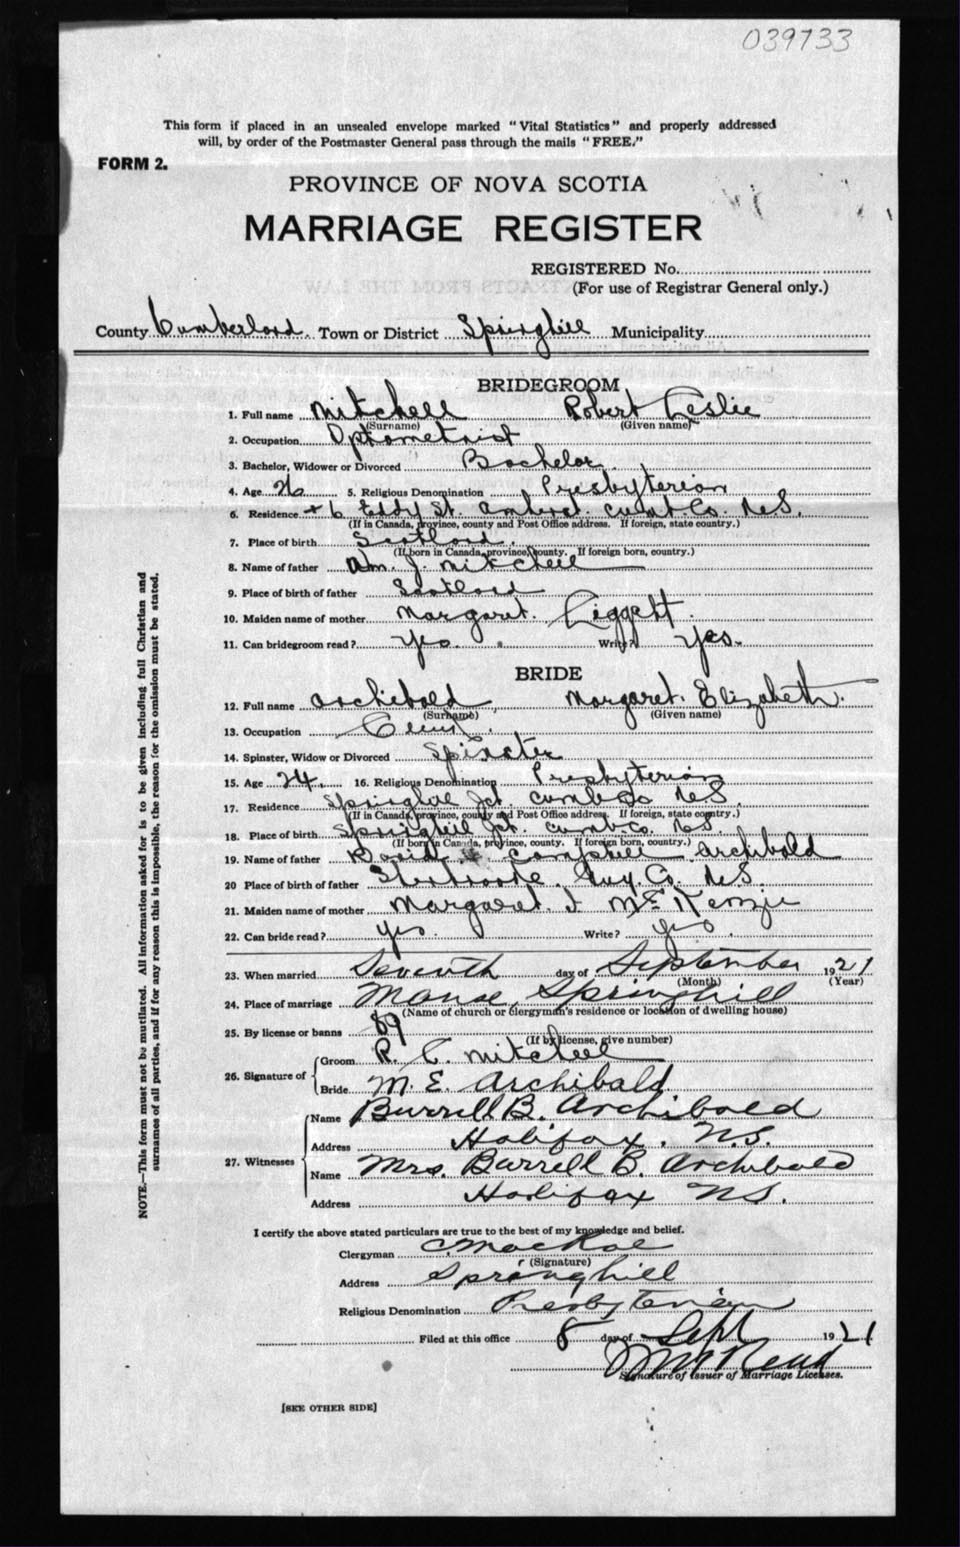 039733
This form if placed in an unsealed envelope marked "Vital Statistics" and properly addressed
will, by order of the Postmaster General pass through the mails "FREE."
FORM 2.
PROVINCE OF NOVA SCOTIA
MARRIAGE REGISTER
REGISTERED No.
(For use of Registrar General only.)
County Cumberland. Town or District Springhill Municipality
BRIDEGROOM
1. Full name Mitchell Robert Leslie
(Surname) (Given name)
2. Occupation Optometrist
3. Bachelor, Widower or Divorced Bachelor.
4. Age 26 5. Religious Denomination Presbyterian
6. Residence Eddy St. Amherst. Cumb. Co. N.S.
(If in Canada, province, county and Post Office address. If foreign, state country.)
7. Place of birth Scotland.
(If born in Canada, province, county. If foreign born, country.)
8. Name of father J. Mitchell
9. Place of birth of father Scotland
10. Maiden name of mother Margaret. Liggett.
11. Can bridegroom read? Yes. Write? Yes.
BRIDE
12. Full name Archibald Margaret. Elizabeth.
(Surname) (Given name)
13. Occupation
14. Spinster, Widow or Divorced Spinster
15. Age 24. 16. Religious Denomination Presbyterian
17. Residence Springhill Jct. Cumb Co N.S.
(If in Canada, province, county and Post Office address. If foreign, state country.)
18. Place of birth Springhill Jct. Cumb. Co. N.S.
(If born in Canada, province, county. If foreign born, country.)
19. Name of father David Campbell Archibald
20 Place of birth of father Sherbrooke. Guy. Co. N.S.
21. Maiden name of mother Margaret. J McKenzie
22. Can bride read? yes. Write? yes.
23. When married Seventh day of September 1921
(Month) (Year)
24. Place of marriage Manse, Springhill
(Name of church or clergyman's residence or location of dwelling house)
25. By license or banns 89
(If by license, give number)
26. Signature of Groom R. L. Mitchell
Bride M. E. Archibald
27. Witnesses Name Burrell B. Archibald
Address Halifax. N.S.
Name Mrs. Burrell B. Archibald
Address Halifax N.S.
I certify the above stated particulars are true to the best of my knowledge and belief.
Clergyman
(Signature)
Address Springhill
Religious Denomination Presbyterian
Filed at this office 8 day of Sept 1921
Signature of Issuer of Marriage Licenses.
[SEE OTHER SIDE]
NOTE.—This form must not be mutilated. All information asked for is to be given including full Christian and
surnames of all parties, and if for any reason this is impossible, the reason for the omission must be stated.